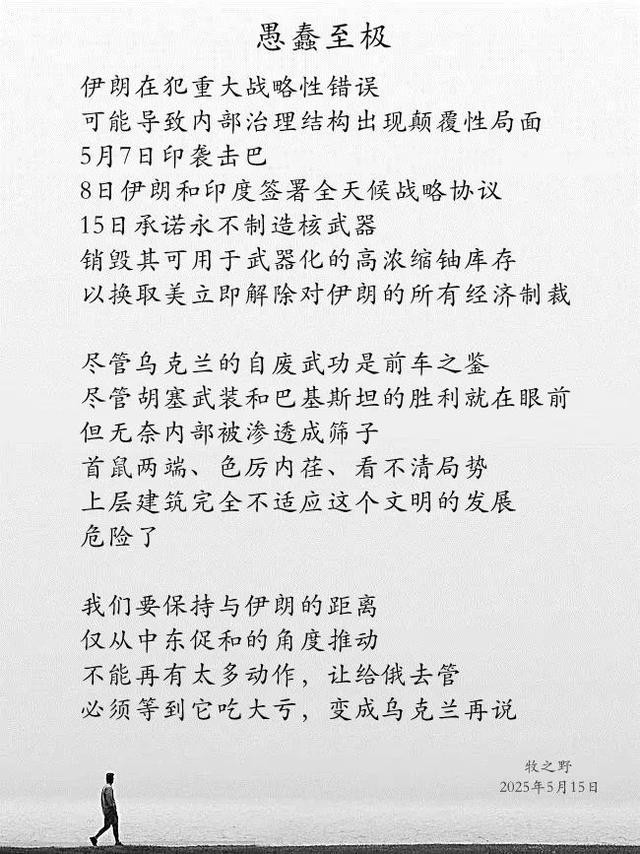 愚蠢至极
伊朗在犯重大战略性错误
可能导致内部治理结构出现颠覆性局面
5月7日印袭击巴
8日伊朗和印度签署全天候战略协议
15日承诺永不制造核武器
销毁其可用于武器化的高浓缩铀库存
以换取美立即解除对伊朗的所有经济制裁
尽管乌克兰的自废武功是前车之鉴
尽管胡塞武装和巴基斯坦的胜利就在眼前
但无奈内部被渗透成筛子
首鼠两端、色厉内荏、看不清局势
上层建筑完全不适应这个文明的发展
危险了
我们要保持与伊朗的距离
仅从中东促和的角度推动
不能再有太多动作，让给俄去管
必须等到它吃大亏，变成乌克兰再说
牧之野
2025年5月15日